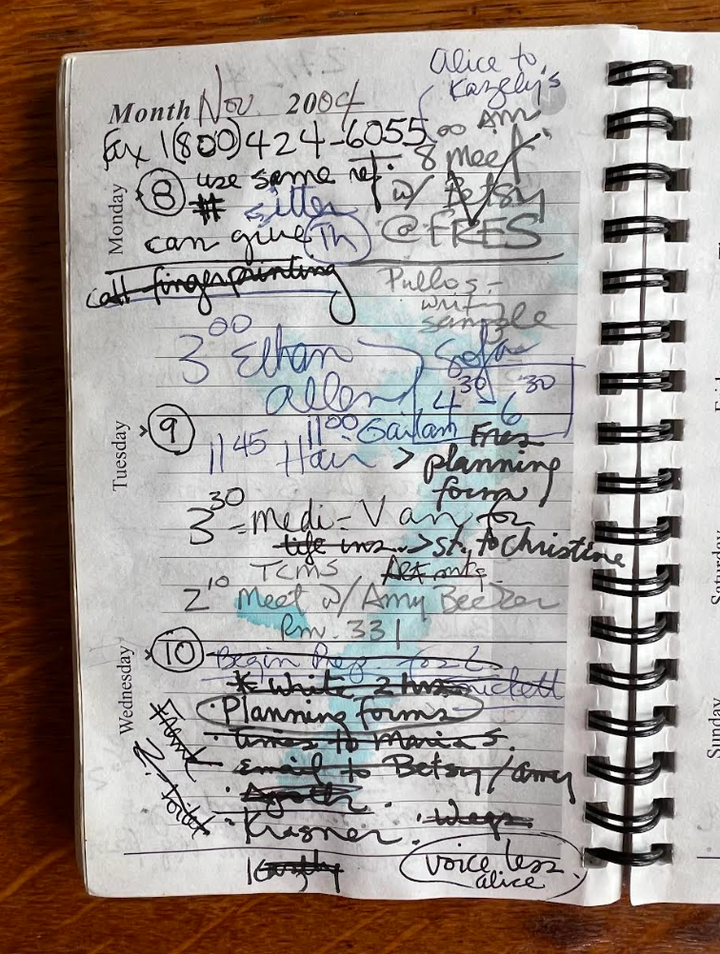 Alice to
Kazely's
Month Nov. 2004
Fax 1(800)424-6055
8 00 AM
Meet
w/ Betsy
@FRES
Monday
8
use same ref.
# sitter
can give Th
call fingerprinting
Pullos -
writ
sample
3 00 Ethan
Allen
Sofa
4 30 - 6 30
Tuesday
9
11 00
11 45 Hair >
Fres
planning
forms
3 30 = Medi-Van for
life ins. > St. to Christine
TCMS
2 10 Meet w/ Amy Beeker
Rm. 331
Wednesday
10
Begin Prep. for
* write 2 hrs
Planning forms
times to Maria S.
email to Betsy/Amy
Krasner
voice less
alice
Saturday
Sunday